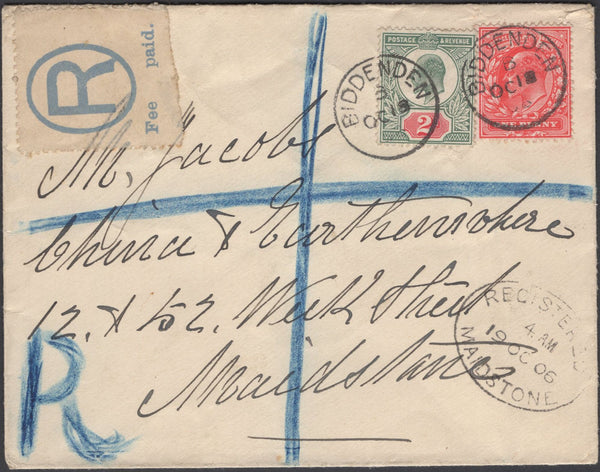 R
Fee paid.
POSTAGE & REVENUE
2
BIDDENDEN
OC 18
BIDDENDEN
OC 18
ONE PENNY
Mr. Jacobs
China & Earthenware
12 & 52, Week Street
Maidstone
REGISTERED
4. AM
19 OC 06
MAIDSTONE
R